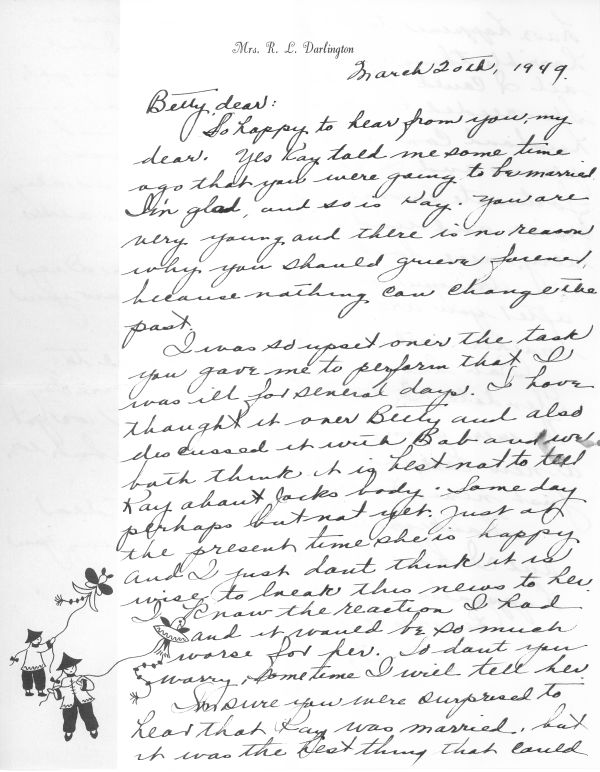 Mrs. R. L. Darlington
March 20th, 1949.
Betty, dear:
So happy to hear from you, my
dear. Yes Kay told me some time
ago that you were going to be married.
I'm glad, and so is Kay. You are
very young and there is no reason
why you should grieve forever,
because nothing can change the
past.
I was so upset over the task
you gave me to perform that I
was ill for several days. I have
thought it over Betty and also
discussed it with Bob and we
both think it is best not to tell
Kay about Jacks body. Some day
perhaps but not yet. Just at
the present time she is happy
and I just dont think it is
wise to break this news to her.
I know the reaction I had
and it would be so much
worse for her. So dont you
worry, sometime I will tell her.
Im sure you were surprised to
hear that Kay was married, but
it was the best thing that could